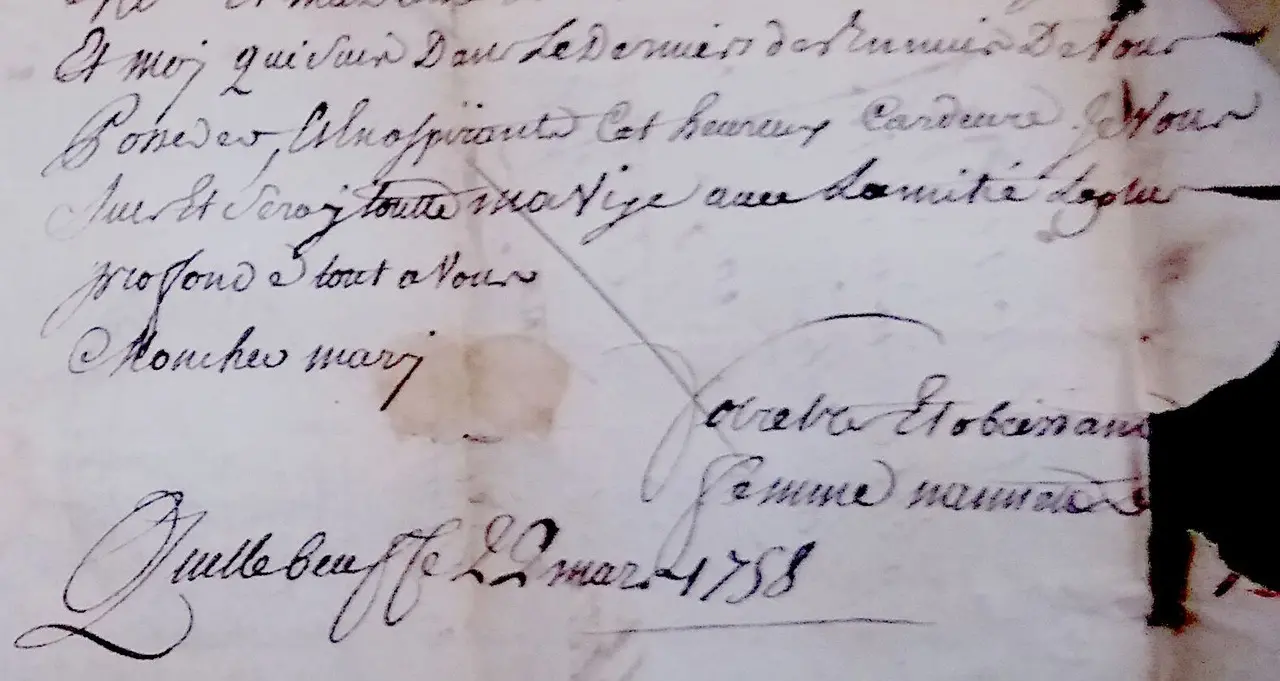 Et moy qui suis Dans Le Derniers des Ennuis De Vous
Posseder, Et En aspirant Cet heureux Cardeure Je Vous
Suis Et Seray toutte ma Vije avec Lamitié Leplus
proffond e tout a Vous
Moncher mary
Votre tres Et obeissante
femme nannette
Quillebeuffe 22 mars 1758